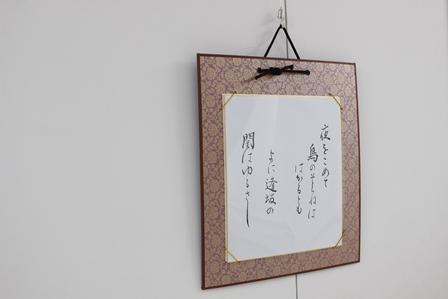 夜をこめて
鳥のそらねは
はかるとも
よに逢坂の
関はゆるさし